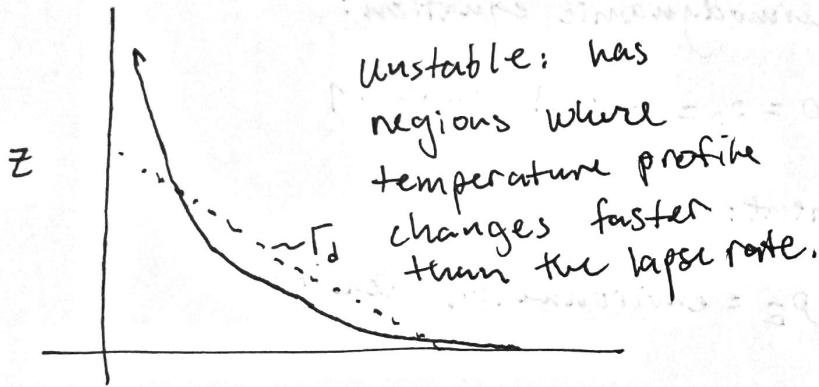 unstable: has
regions where
temperature profile
changes faster
than the lapse rate.
z
~Γd